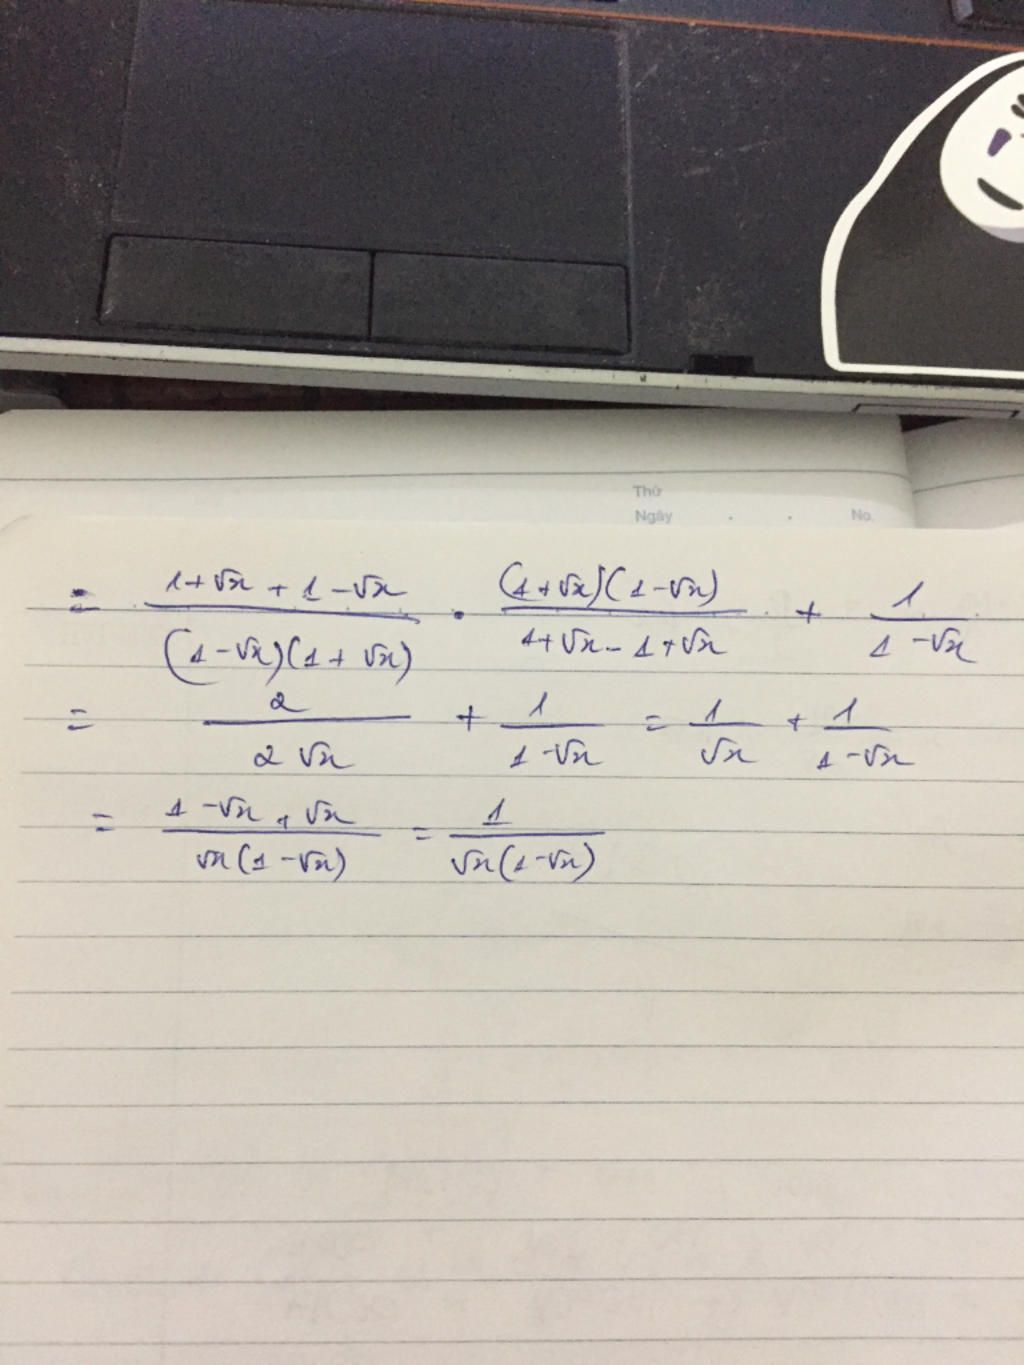 Thứ
Ngày . . No.
= (1+√x + 1-√x)/((1-√x)(1+√x)) . ((1+√x)(1-√x))/(1+√x - 1+√x) + 1/(1-√x)
= 2/(2√x) + 1/(1-√x) = 1/√x + 1/(1-√x)
= (1-√x + √x)/(√x(1-√x)) = 1/(√x(1-√x))